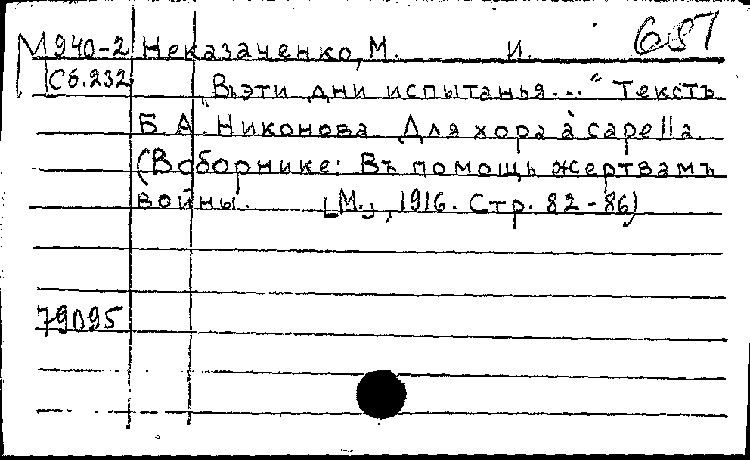 687
М 940-2 Неказаченко, М. И.
Сб.232 „Въ эти дни испытанья..." Текстъ
Б. А. Никонова. Для хора à capella.
(В сборнике: Въ помощь жертвамъ
войны. [М.], 1916. Стр. 82-86)
79095